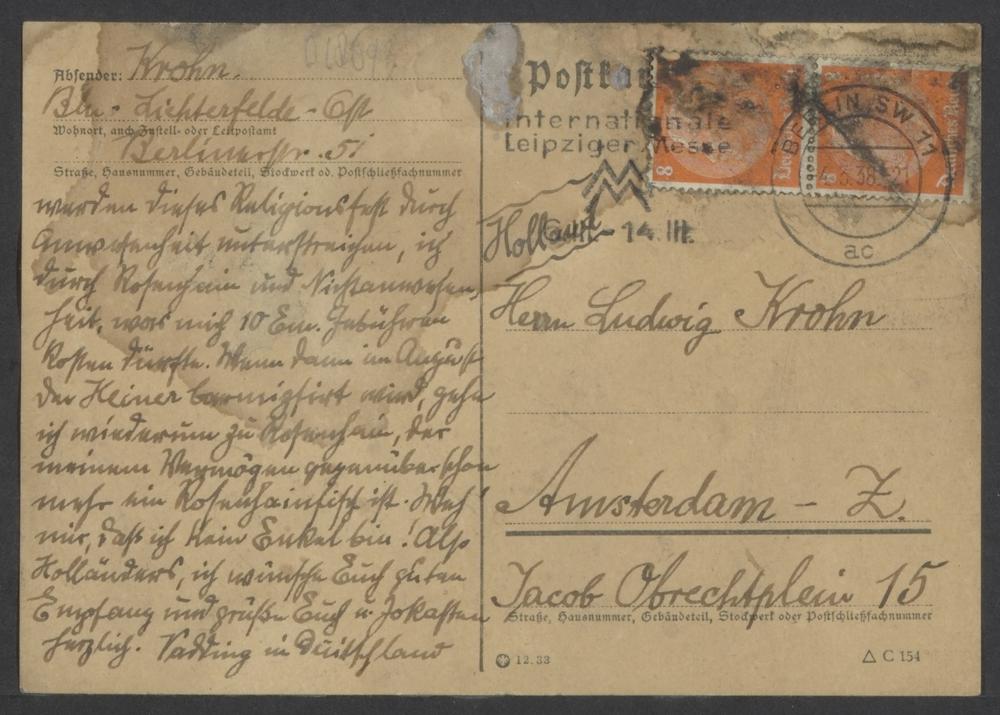 Absender: Krohn.
Bln-Lichterfelde-Ost
Wohnort, auch Zustell- oder Leitpostamt
Berlinerstr. 51
Straße, Hausnummer, Gebäudeteil, Stockwerk od. Postschließfachnummer
werden dieses Religionsfest durch
Anwesenheit unterstreichen, ich
durch Rosenhain und Nichtanwesen-
heit, was mich 10 Em. Gebühren
kosten dürfte. Wenn dann im August
der Heiner barmizfirt wird, gehe
ich wiederum zu Rosenhain, der
meinem Vermögen gegenüber schon
mehr ein Rosenhainfisch ist. Weh'
mir, daß ich kein Enkel bin! Also
Holländers, ich wünsche Euch guten
Empfang und grüße Euch u. Jokasten
herzlich. Vadding in Duitschland
Postkarte
Internationale
Leipziger Messe
6.III - 14.III.
8
8
BERLIN SW 11
3.38-21
ac
Holland
Herrn Ludwig Krohn
Amsterdam - Z.
Jacob Obrechtplein 15
Straße, Hausnummer, Gebäudeteil, Stockwerk oder Postschließfachnummer
12.33
C 154